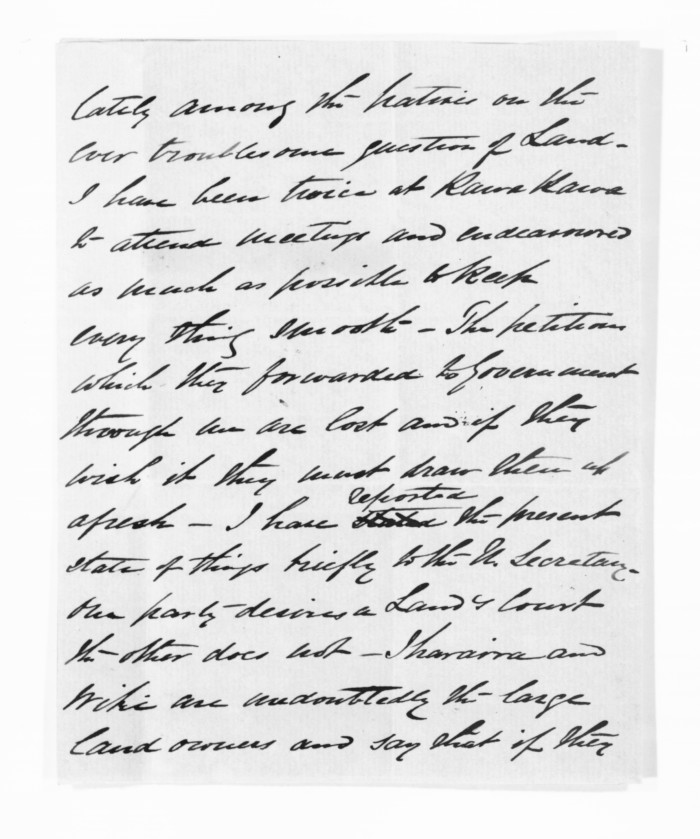 lately among the natives on the
ever troublesome question of Land -
I have been twice at Kawa Kawa
to attend meetings and endeavoured
as much as possible to keep
every thing smooth - The petitions
which they forwarded to Government
through me are lost and if they
wish it they must draw them up
reported
afresh - I have stated the present
state of things briefly to the Un Secretary -
One party desires a Lands Court
the other does not - Iharaira and
Wiki are undoubtedly the large
land owners and say that if they